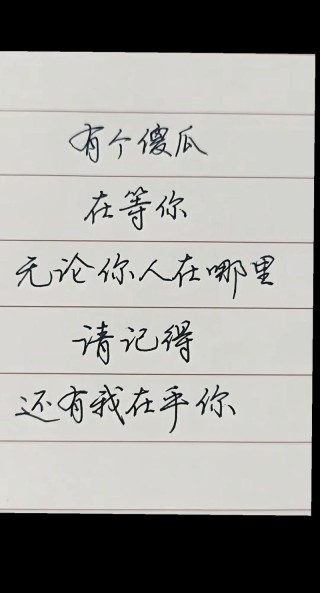 有个傻瓜
在等你
无论你人在哪里
请记得
还有我在乎你